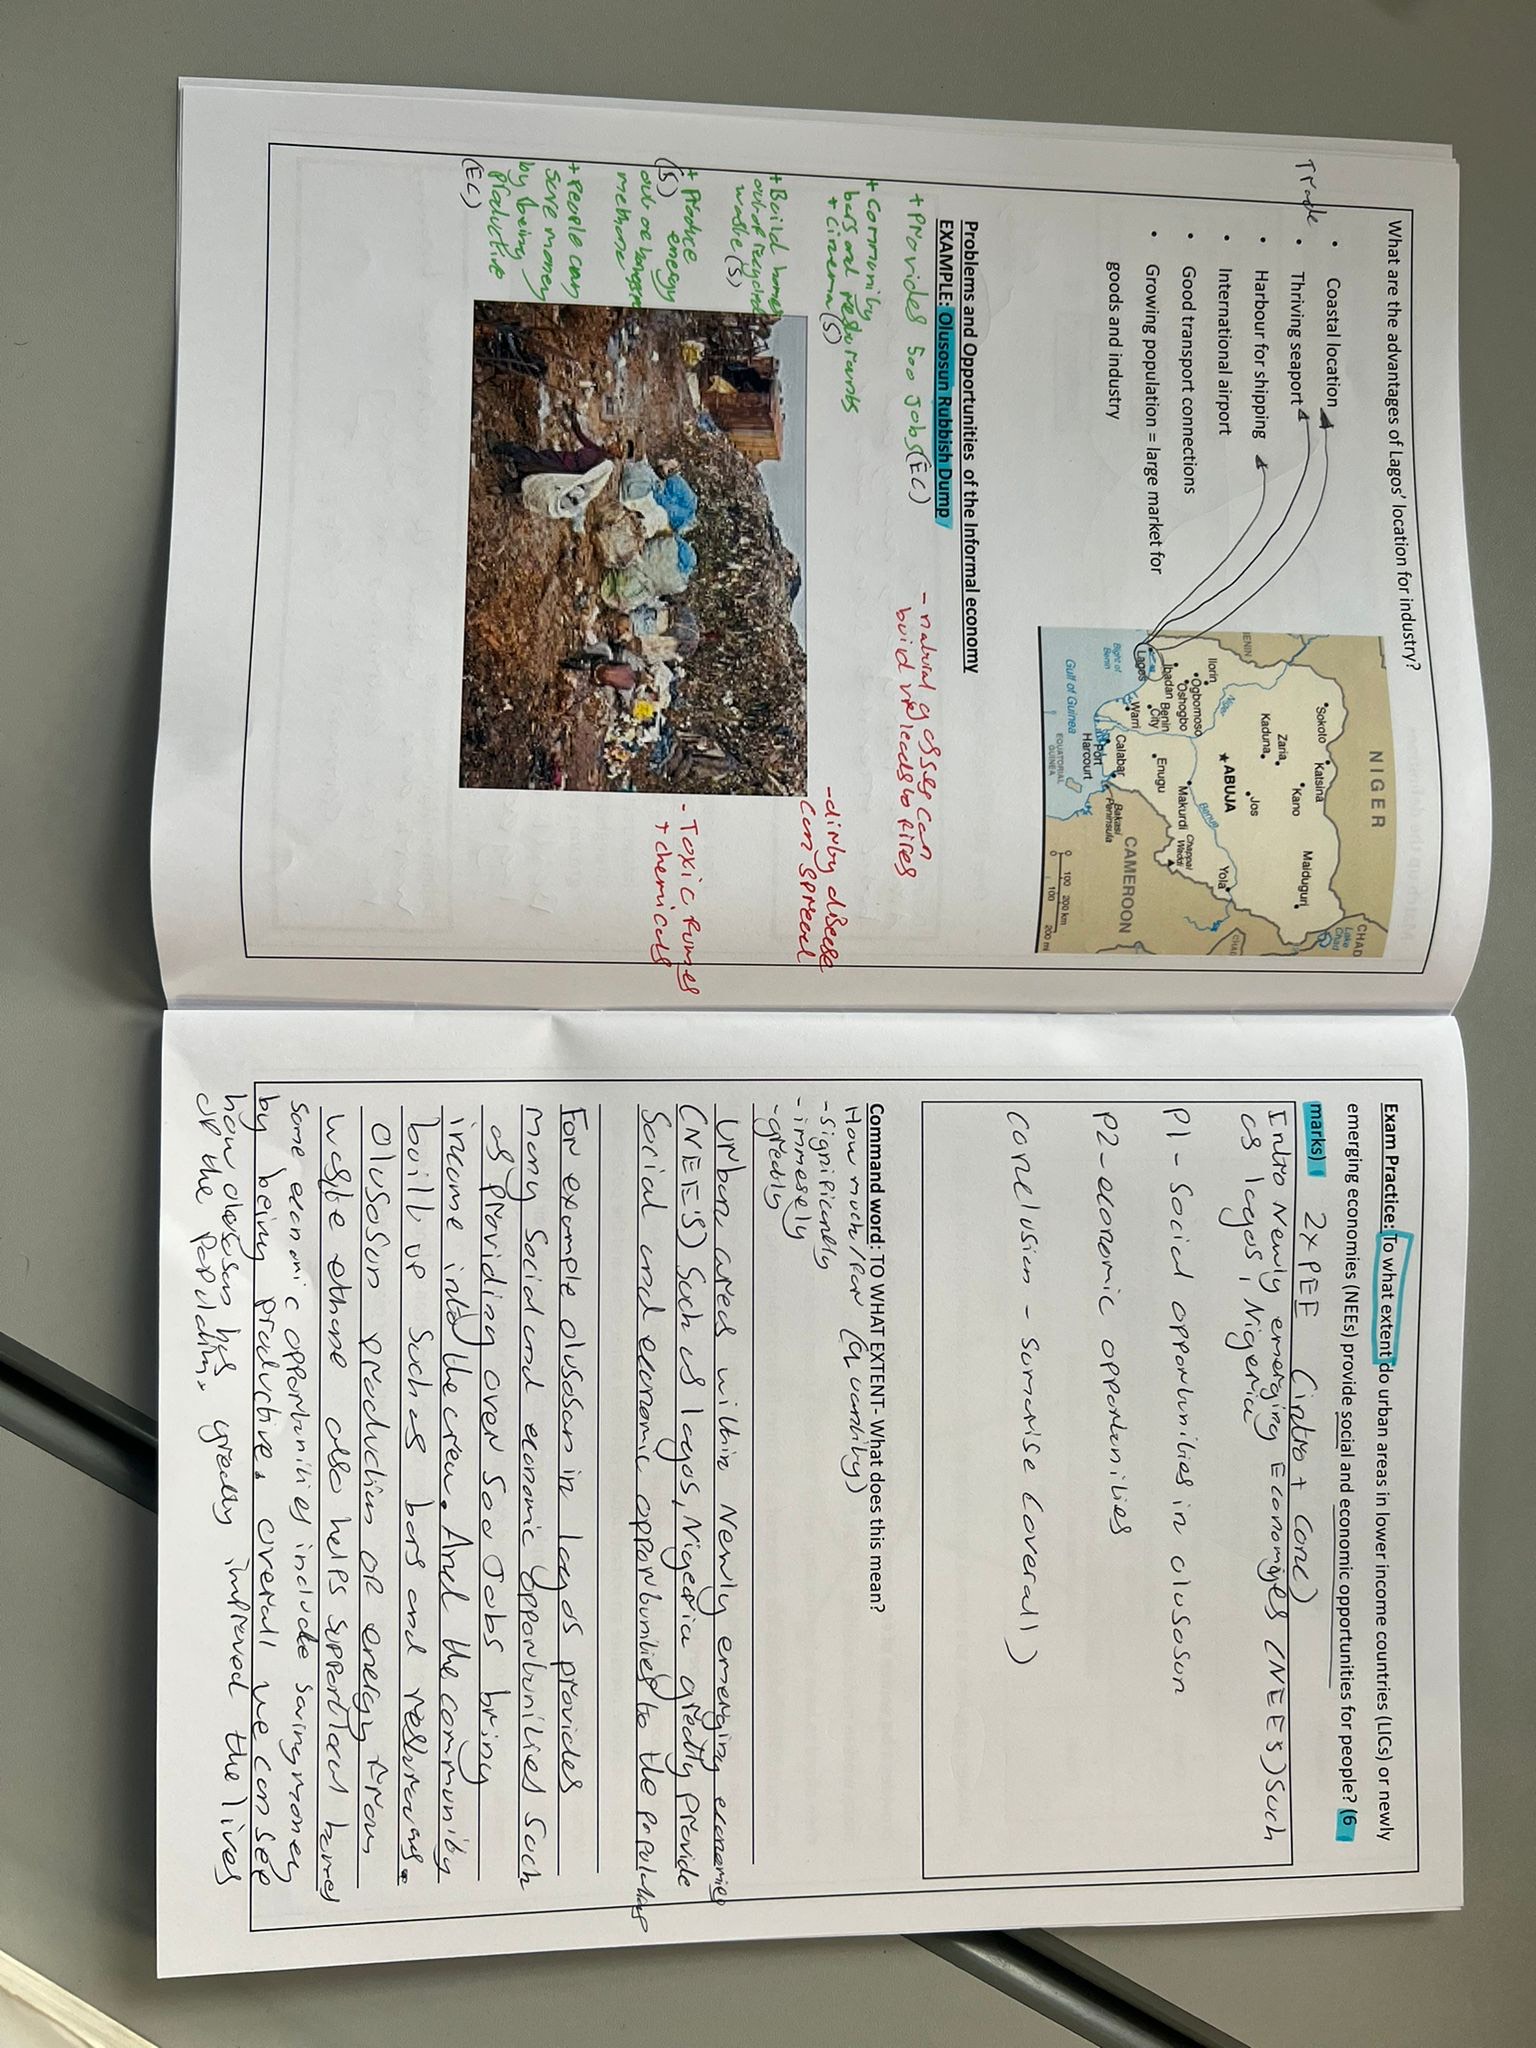 What are the advantages of Lagos' location for industry?
• Coastal location
Trade • Thriving seaport
• Harbour for shipping
• International airport
• Good transport connections
• Growing population = large market for
goods and industry
NIGER
CHAD
Lake
Chad
Sokoto
Katsina
Kano
Maiduguri
Zaria
Kaduna
Jos
BENIN
Ilorin
ABUJA
Yola
Ogbomoso
Oshogbo
Ibadan
Benin
City
Lagos
Enugu
Makurdi
Benue
Chappal
Waddi
Warri
Calabar
Port
Harcourt
Bakasi
Peninsula
CAMEROON
Bight of
Benin
Gulf of Guinea
EQUATORIAL
GUINEA
0 100 200 km
0 100 200 mi
Problems and Opportunities of the Informal economy
EXAMPLE: Olusosun Rubbish Dump
+ Provides 500 Jobs (EC)
- natural gasses can
build up leads to fires
+ community
bars and resturants
+ cinema (S)
+ Build homes
out of recycled
waste (S)
+ Produce
(S) energy
out of
methane
+ People can
save money
by being
productive
(EC)
- dirty disease
can spread
- Toxic fumes
+ chemicals
Exam Practice: To what extent do urban areas in lower income countries (LICs) or newly
emerging economies (NEEs) provide social and economic opportunities for people? (6
marks) 2x PEE (intro + conc)
Intro Newly emerging Economies (NEES) Such
as lagos, Nigeria
P1 - Social opportunities in olusosun
P2 - economic opportunities
Conclusion - sumarise (overall)
Command word: TO WHAT EXTENT- What does this mean?
How much/far (quantity)
- significantly
- immesely
- greatly
Urban areas within Newly emerging economies
(NEE'S) Such as lagos, Nigeria greatly provide
Social and economic opportunities to the
For example olusosun in lagos provides
many social and economic opportunities such
as providing over 500 Jobs bring
income into the area. And the community
built up such as bars and
olusosun production of energy from
waste ethane also helps support local homes
some economic opportunities include saving money
by being productive. overall we can see
how olusosun has greatly improved the lives
of the population.